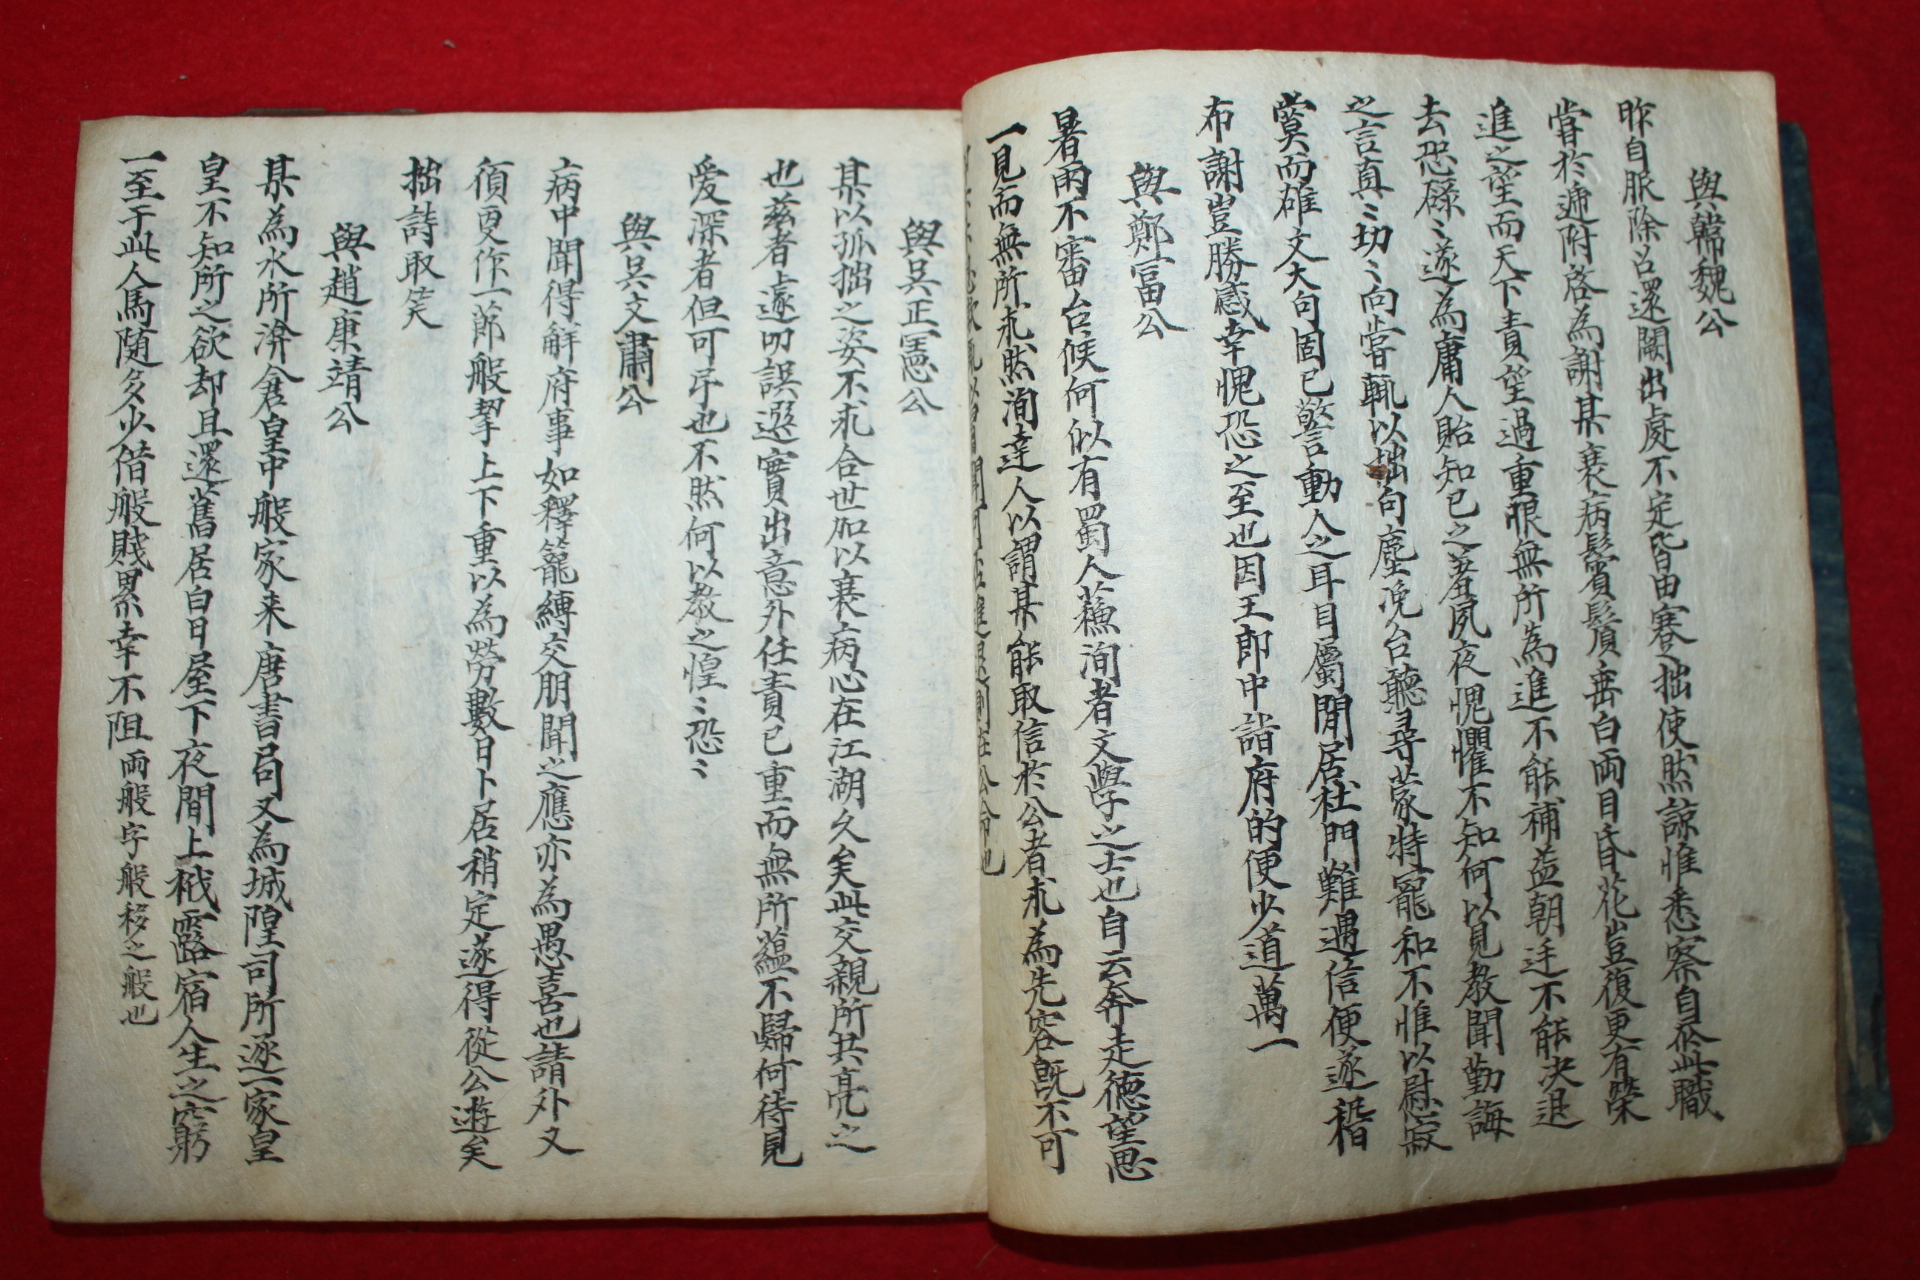 與韓魏公
昨自服除召還闕出處不定皆由褰拙使然諒惟悉察自忝此職
嘗於遞附啓為謝某衰病鬂鬚垂白兩目昏花豈復更有榮
進之望而天下責望過重恨無所為進不能補益朝廷不能決退
去恐碌〻遂為庸人貽知已之羞夙夜愧懼不知何以見教聞勤誨
之言真〻切〻向嘗輒以拙句塵浼台聽尋蒙特寵和不惟以慰寂
寞而雄文大句固已警動人之耳目屬閒居杜門難遇信便遂稽
布謝豈勝感幸愧恐之至也因王郎中詣府的便少道萬一
與鄭富公
暑雨不審台候何似有蜀人蘇洵者文學之士也自云奔走德望思
一見而無所求然洵遠人以謂某能取信於公者求為先容旣不可
與吳正憲公
某以孤拙之姿不求合世加以衰病心在江湖久矣此交親所共亮之
也茲者上遽叨誤選實出意外任責已重而無所蘊不歸何待見
愛深者但可弔也不然何以教之惶〻恐〻
與吳文肅公
病中聞得解府事如釋籠縛交朋聞之應亦為愚喜也請外又
須更作一節般挈上下重以為勞數日卜居稍定遂得從公遊矣
拙詩取笑
與趙康靖公
某為水所渰倉皇中般家来唐書局又為城隍司所逐一家皇
皇不知所之欲却且還舊居白日屋下夜間上栰露宿人生之窮
一至于此人馬隨多少借般賤累幸不阻 兩般字般移之般也